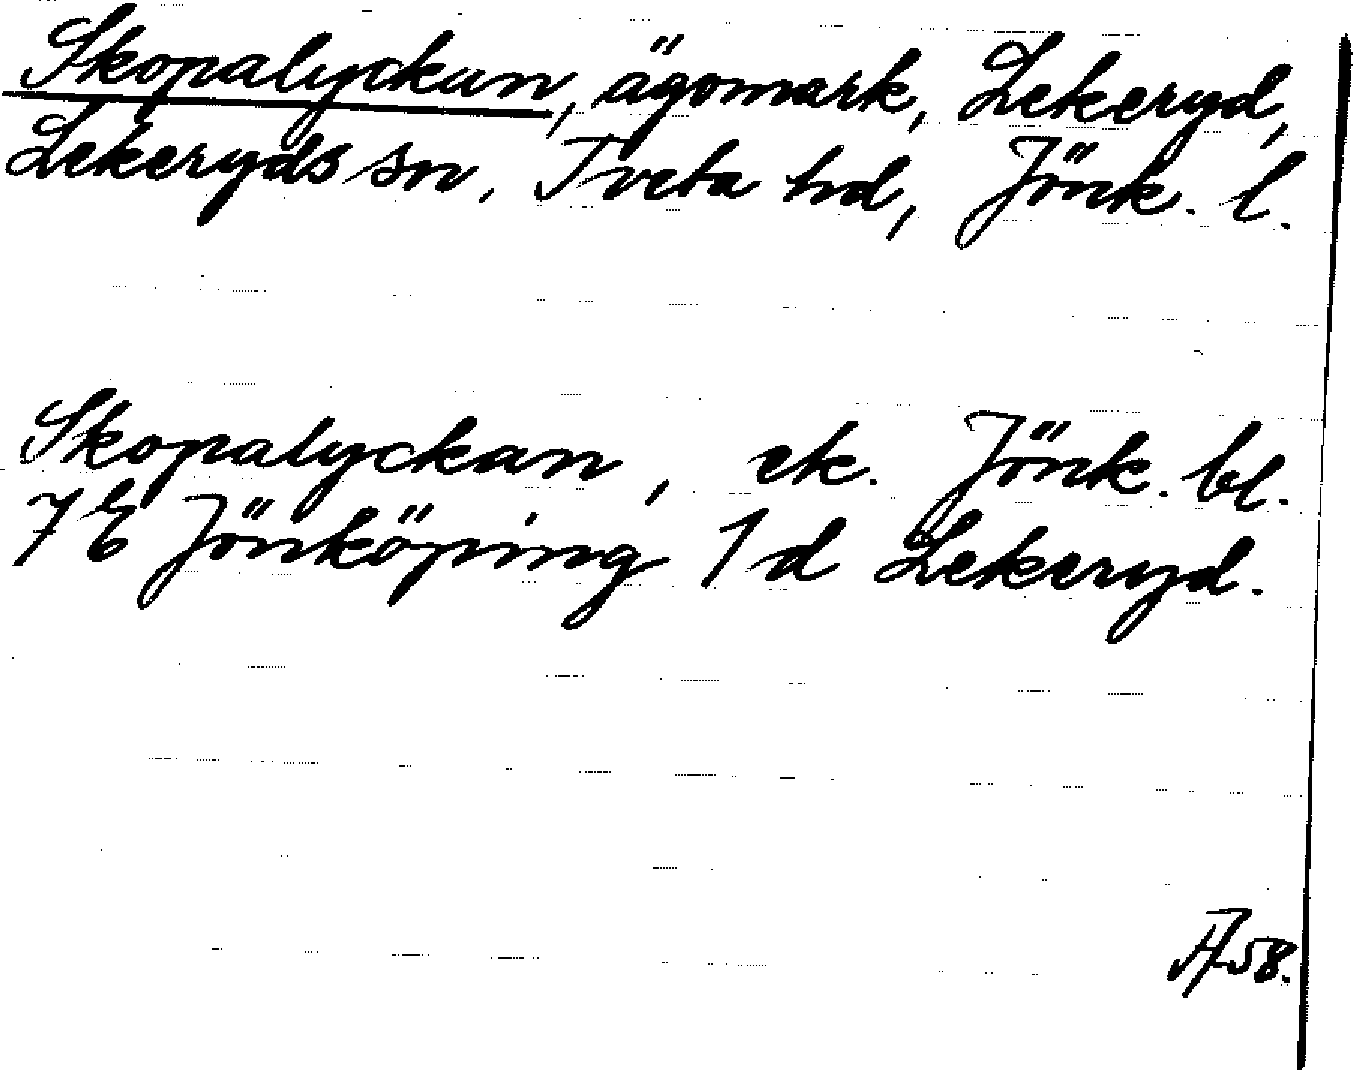 Skopalyckan, ägomark, Lekeryd,
Lekeryds sn, Tveta hd, Jönk. l.
Skopalyckan, ek. Jönk. bl.
7E Jönköping 1d Lekeryd.
58.